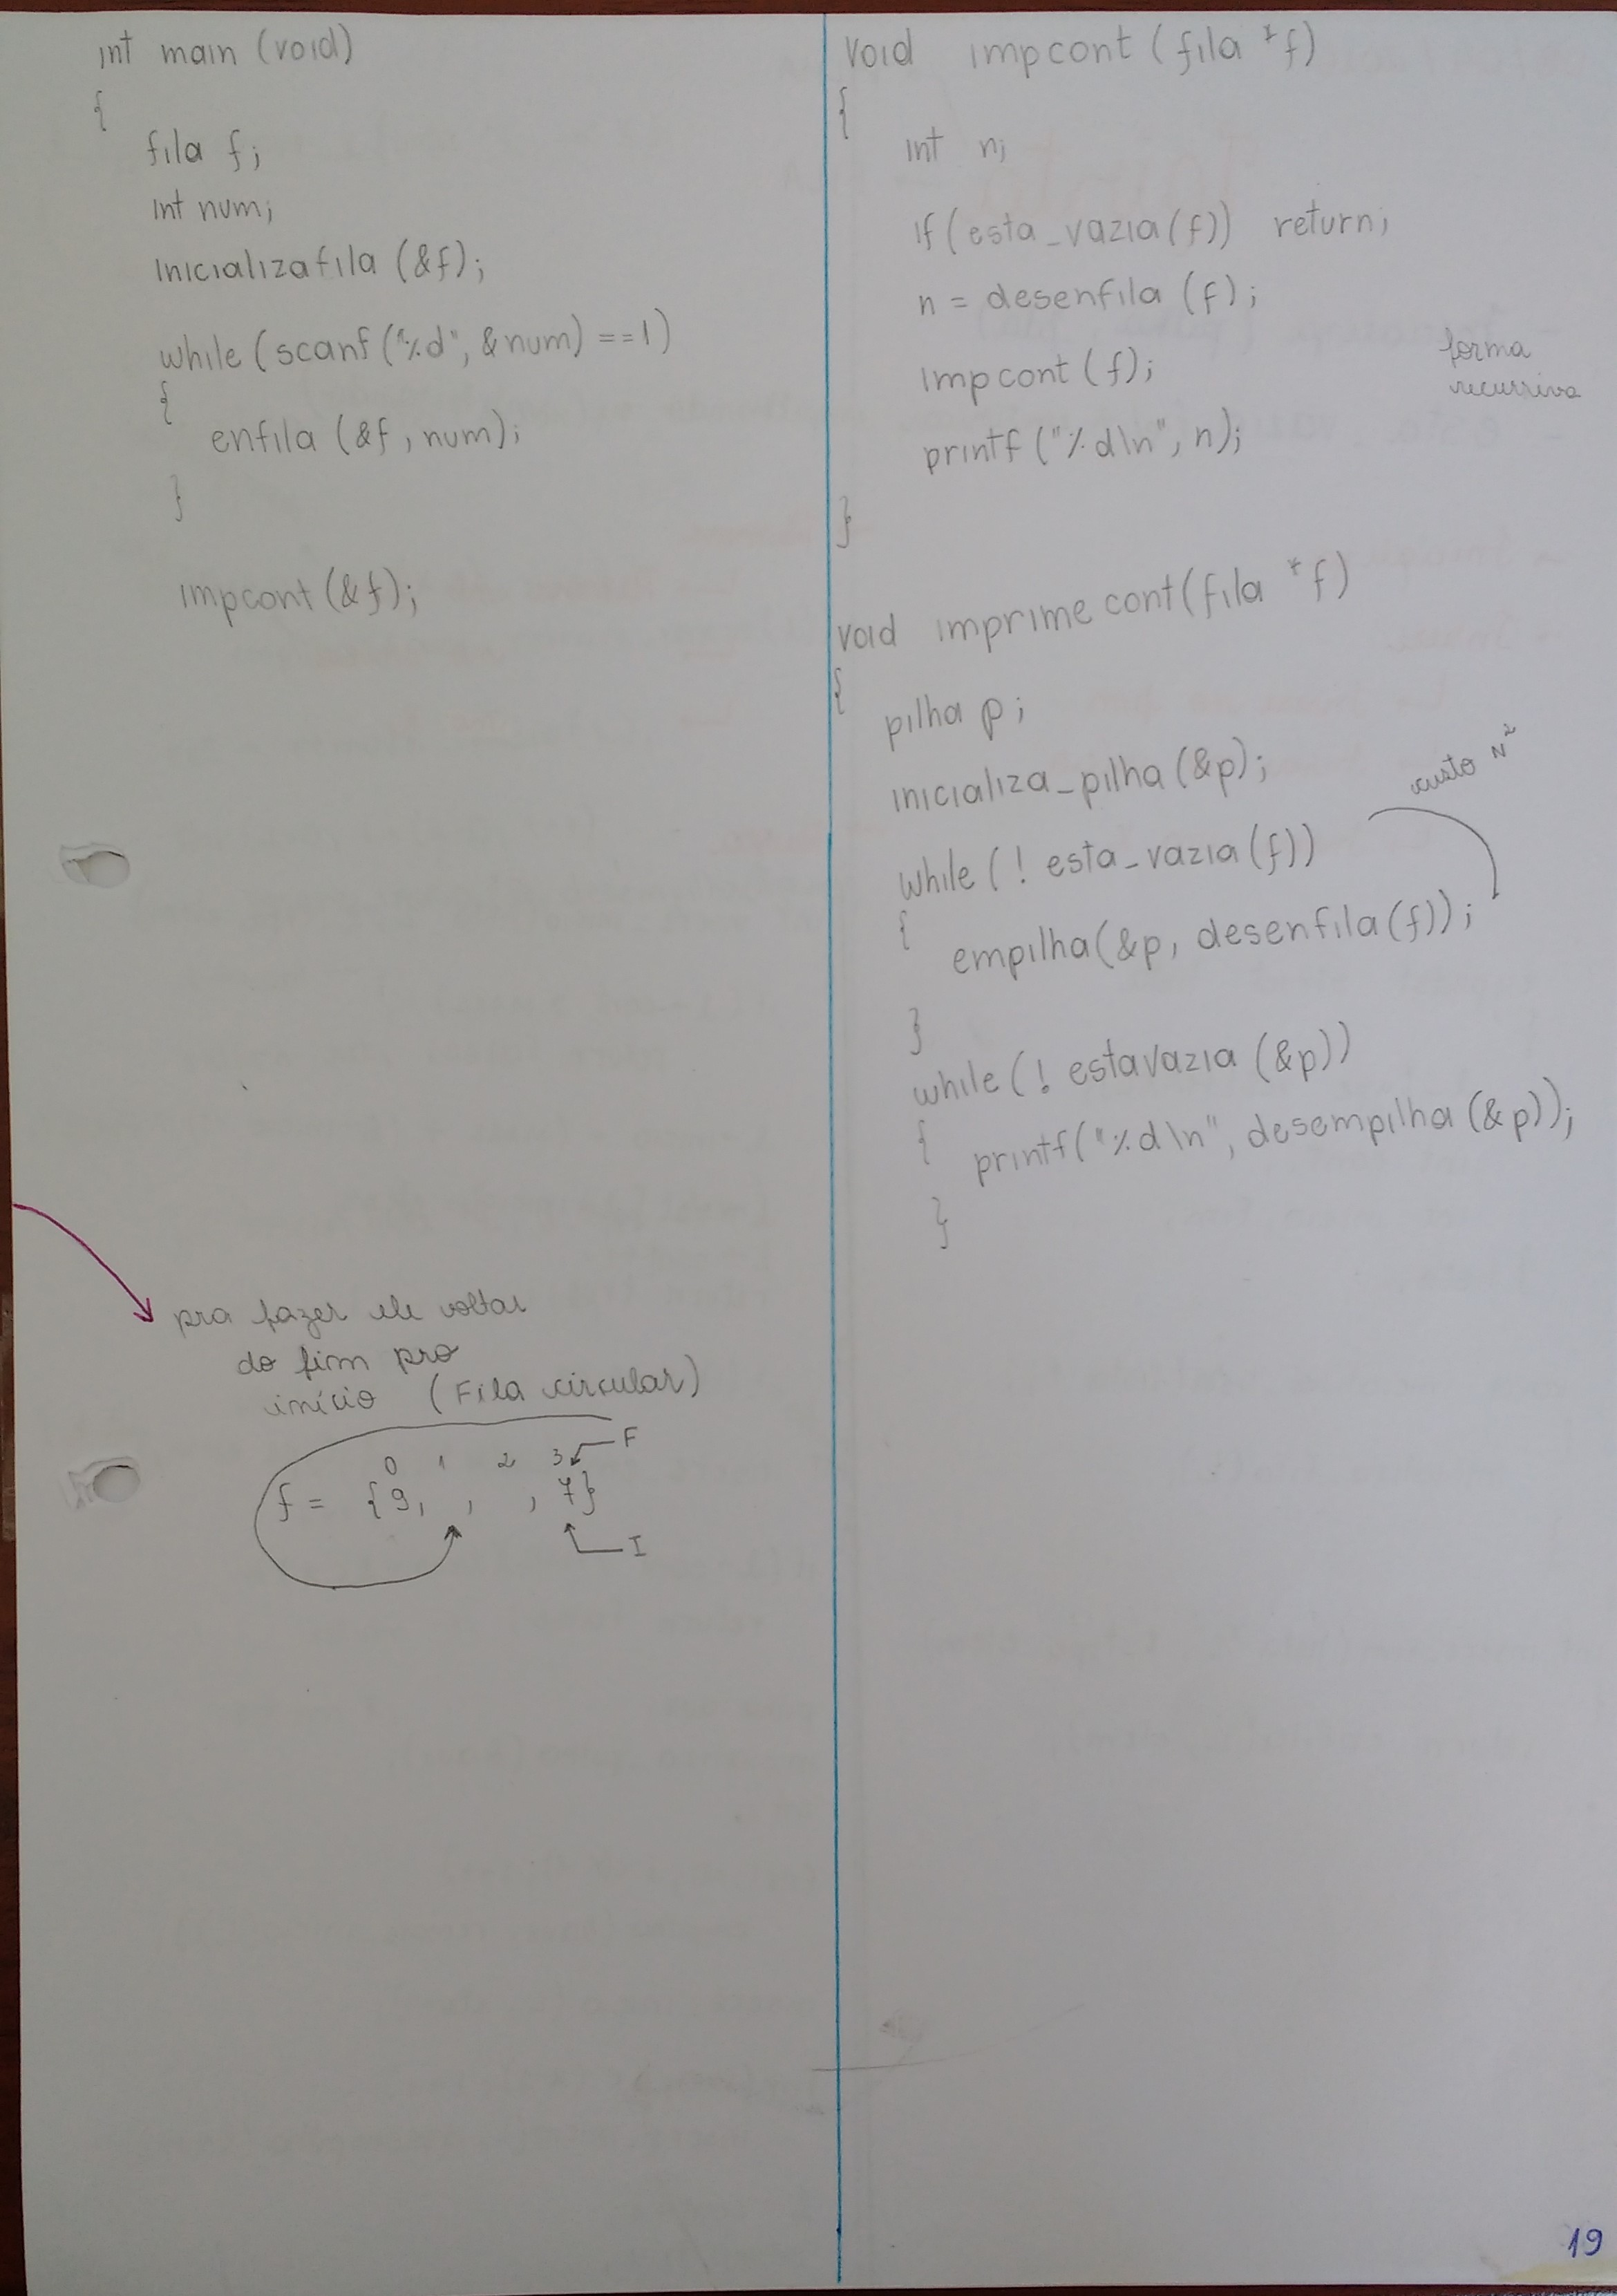 int main (void)
{
fila f;
int num;
inicializafila (&f);
while (scanf ("%d", &num) ==1)
{
enfila (&f, num);
}
impcont (&f);
pra fazer ele voltar
do fim pro
início (Fila circular)
F
0 1 2 3
f = {9, , , 7}
I
void impcont (fila *f)
{
int n;
if (esta_vazia (f)) return;
n = desenfila (f);
impcont (f);
forma
recursiva
printf ("%d\n", n);
}
void imprime cont (fila *f)
{
pilha p;
inicializa_pilha (&p);
custo N²
while (! esta_vazia (f))
{
empilha (&p, desenfila (f));
}
while (! estavazia (&p))
{
printf ("%d\n", desempilha (&p));
}
19